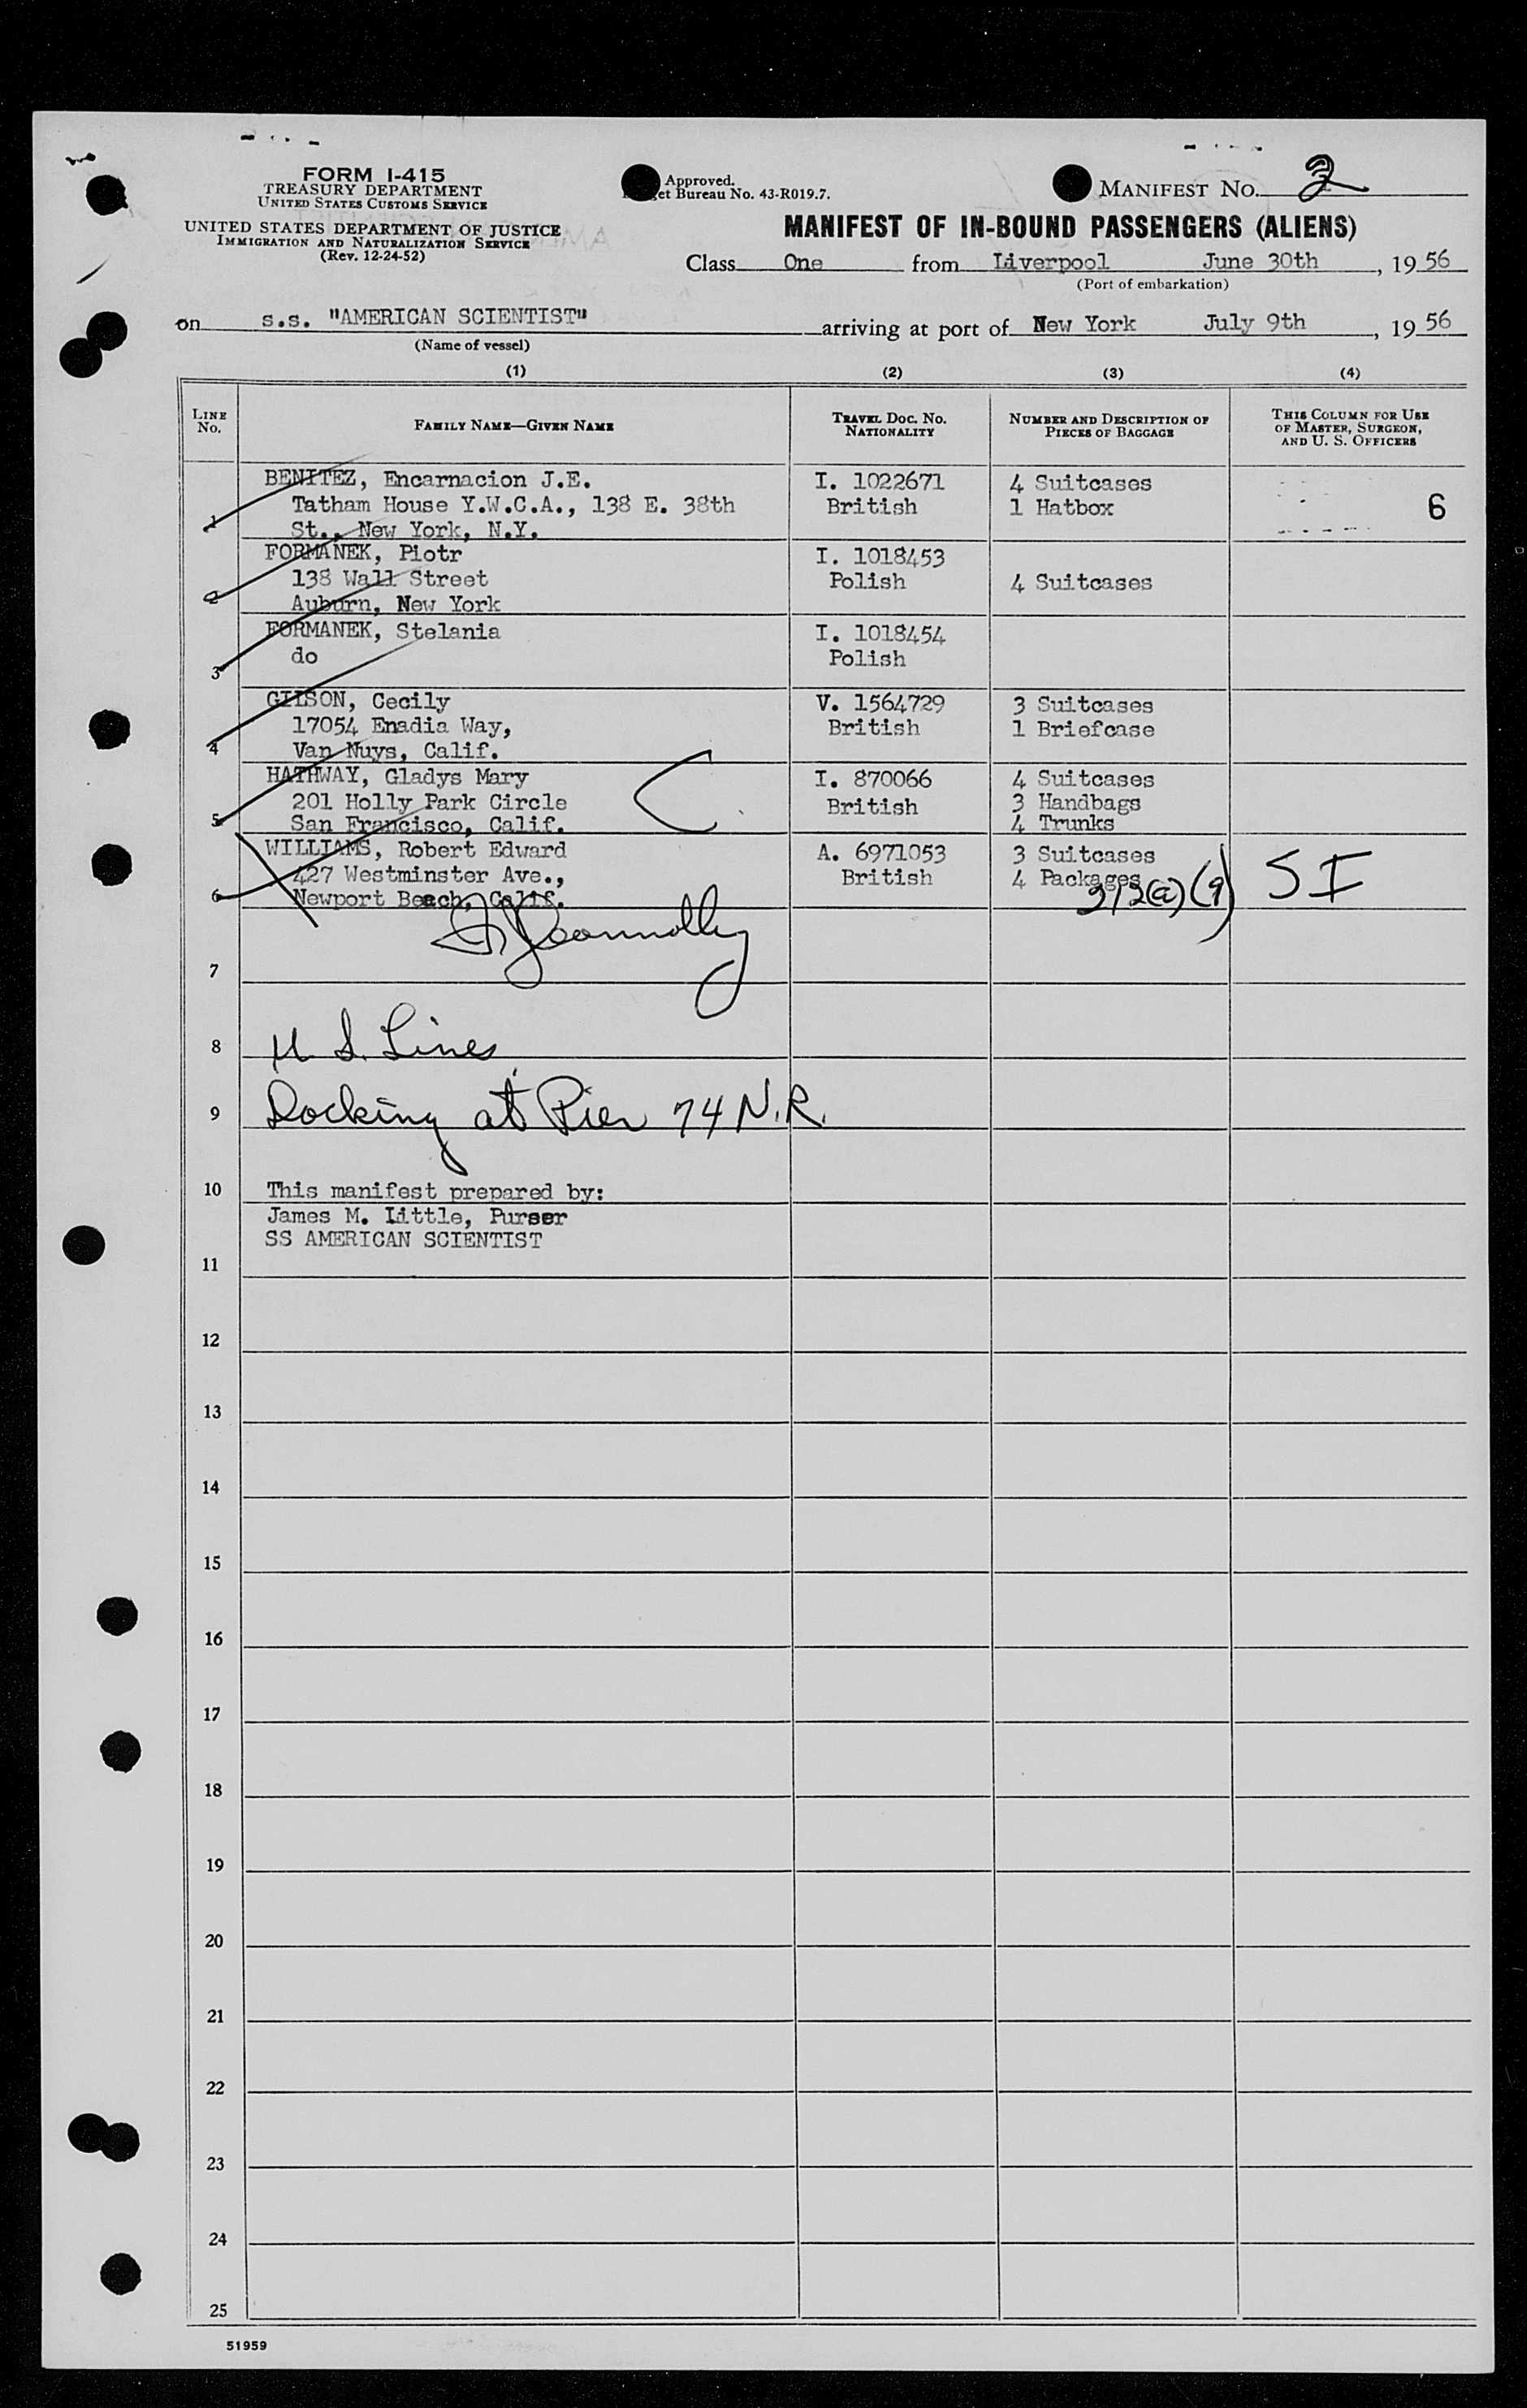 FORM I-415
TREASURY DEPARTMENT
UNITED STATES CUSTOMS SERVICE
UNITED STATES DEPARTMENT OF JUSTICE
IMMIGRATION AND NATURALIZATION SERVICE
(Rev. 12-24-52)
Approved.
et Bureau No. 43-R019.7.
MANIFEST NO. 2
MANIFEST OF IN-BOUND PASSENGERS (ALIENS)
Class One from Liverpool June 30th, 19 56
(Port of embarkation)
on s.s. "AMERICAN SCIENTIST" arriving at port of New York July 9th, 19 56
(Name of vessel)
(1) (2) (3) (4)
LINE No. FAMILY NAME—GIVEN NAME TRAVEL DOC. NO. NATIONALITY NUMBER AND DESCRIPTION OF PIECES OF BAGGAGE THIS COLUMN FOR USE OF MASTER, SURGEON, AND U. S. OFFICERS
BENITEZ, Encarnacion J.E. I. 1022671 4 Suitcases
1 Tatham House Y.W.C.A., 138 E. 38th British 1 Hatbox 6
St., New York, N.Y.
FORMANEK, Piotr I. 1018453
2 138 Wall Street Polish 4 Suitcases
Auburn, New York
FORMANEK, Stelania I. 1018454
3 do Polish
GILSON, Cecily V. 1564729 3 Suitcases
4 17054 Enadia Way, British 1 Briefcase
Van Nuys, Calif.
HATHWAY, Gladys Mary I. 870066 4 Suitcases
5 201 Holly Park Circle British 3 Handbags
San Francisco, Calif. 4 Trunks
WILLIAMS, Robert Edward A. 6971053 3 Suitcases
6 427 Westminster Ave., British 4 Packages 212(a)(9) SI
Newport Beach, Calif.
7
8 U. S. Lines
9 Docking at Pier 74 N.R.
10 This manifest prepared by:
James M. Little, Purser
SS AMERICAN SCIENTIST
11
12
13
14
15
16
17
18
19
20
21
22
23
24
25
51959